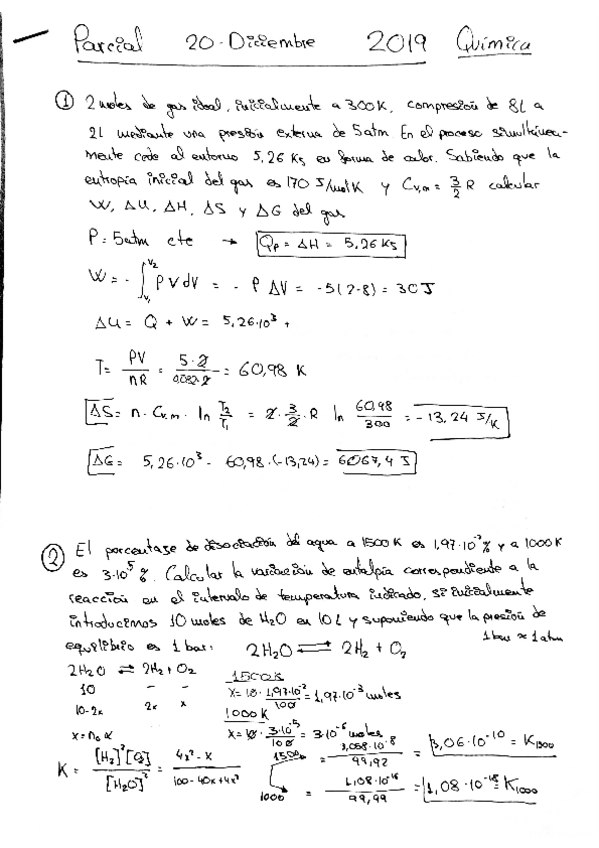 Parcial 20-Diciembre 2019 Química
① 2 moles de gas ideal, inicialmente a 300K, compresión de 8L a
2L mediante una presión externa de 5atm En el proceso simultánea-
mente cede al entorno 5,26 KJ en forma de calor. Sabiendo que la
entropía inicial del gas es 170 J/molK y Cv,m = 3/2 R calcular
W, ΔU, ΔH, ΔS y ΔG del gas
P = 5atm cte → Qp = ΔH = 5,26 KJ
W = - ∫V₁^V₂ P V dV = - P ΔV = -5(2-8) = 30 J
ΔU = Q + W = 5,26·10³ +
T = PV/nR = 5·2/0,082·2 = 60,98 K
ΔS = n · Cv,m · ln T₂/T₁ = 2 · 3/2 · R ln 60,98/300 = -13,24 J/K
ΔG = 5,26·10³ - 60,98·(-13,24) = 6067,4 J
② El porcentaje de disociación del agua a 1500K es 1,97·10⁻²% y a 1000K
es 3·10⁻⁵ %. Calcular la variación de entalpía correspondiente a la
reacción en el intervalo de temperatura indicado, si inicialmente
introducimos 10 moles de H₂O en 10L y suponiendo que la presión de
equilibrio es 1 bar: 2H₂O ⇌ 2H₂ + O₂ 1bar ≈ 1atm
2H₂O ⇌ 2H₂ + O₂ 1500K
10 - - x = 10 · 1,97·10⁻²/100 = 1,97·10⁻³ moles
10-2x 2x x 1000K
x = n₀ α x = 10 · 3·10⁻⁵/100 = 3·10⁻⁶ moles
K = [H₂]²[O₂]/[H₂O]² = 4x²·x/100-40x+4x² 1500 = 3,058·10⁻⁸/99,92 = 3,06·10⁻¹⁰ = K₁₅₀₀
1000 = 1,08·10⁻¹⁶/99,99 = 1,08·10⁻¹⁸ = K₁₀₀₀